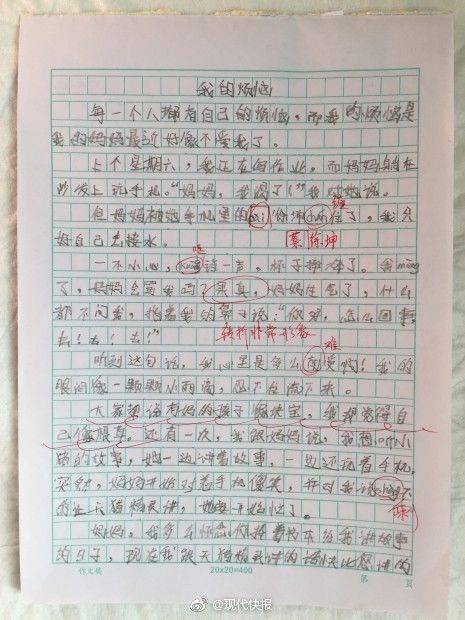 我的烦恼
每一个人都有自己的烦恼,而我的烦恼是
我的妈妈最近好像不爱我了。
上个星期六,我正在写作业,而妈妈躺在
沙发上玩手机。“妈妈,我渴了!”我对她说。
但妈妈被她手机里的
住了,我只
缠
好自己去接水。
蔡徐坤
一不小心,
一声,杯子摔碎了。我
了,妈妈会骂我吗?果真,妈妈生气了,什么
都不问我,指着我的鼻子说:“你呀,怎么回事,
去!去!去!”
转折非常形象
听到这句话,我心里是多么
受啊!我的
难
眼泪像一颗颗小雨滴,忍不住流下来。
大家都说有妈的孩子像块宝,我却觉得自
己像根草。还有一次,我跟妈妈说,我想听小
猪的故事,她一边讲着故事,一边还玩着手机,
突然,妈妈开始对着手机傻笑,并对我说
天猫精灵讲,她
妈妈,我多么怀念你捧着书本给我讲故事
的日子,现在我跟天猫精灵讲的话快比您讲的
作文稿
20×20=400
第 页
@现代快报